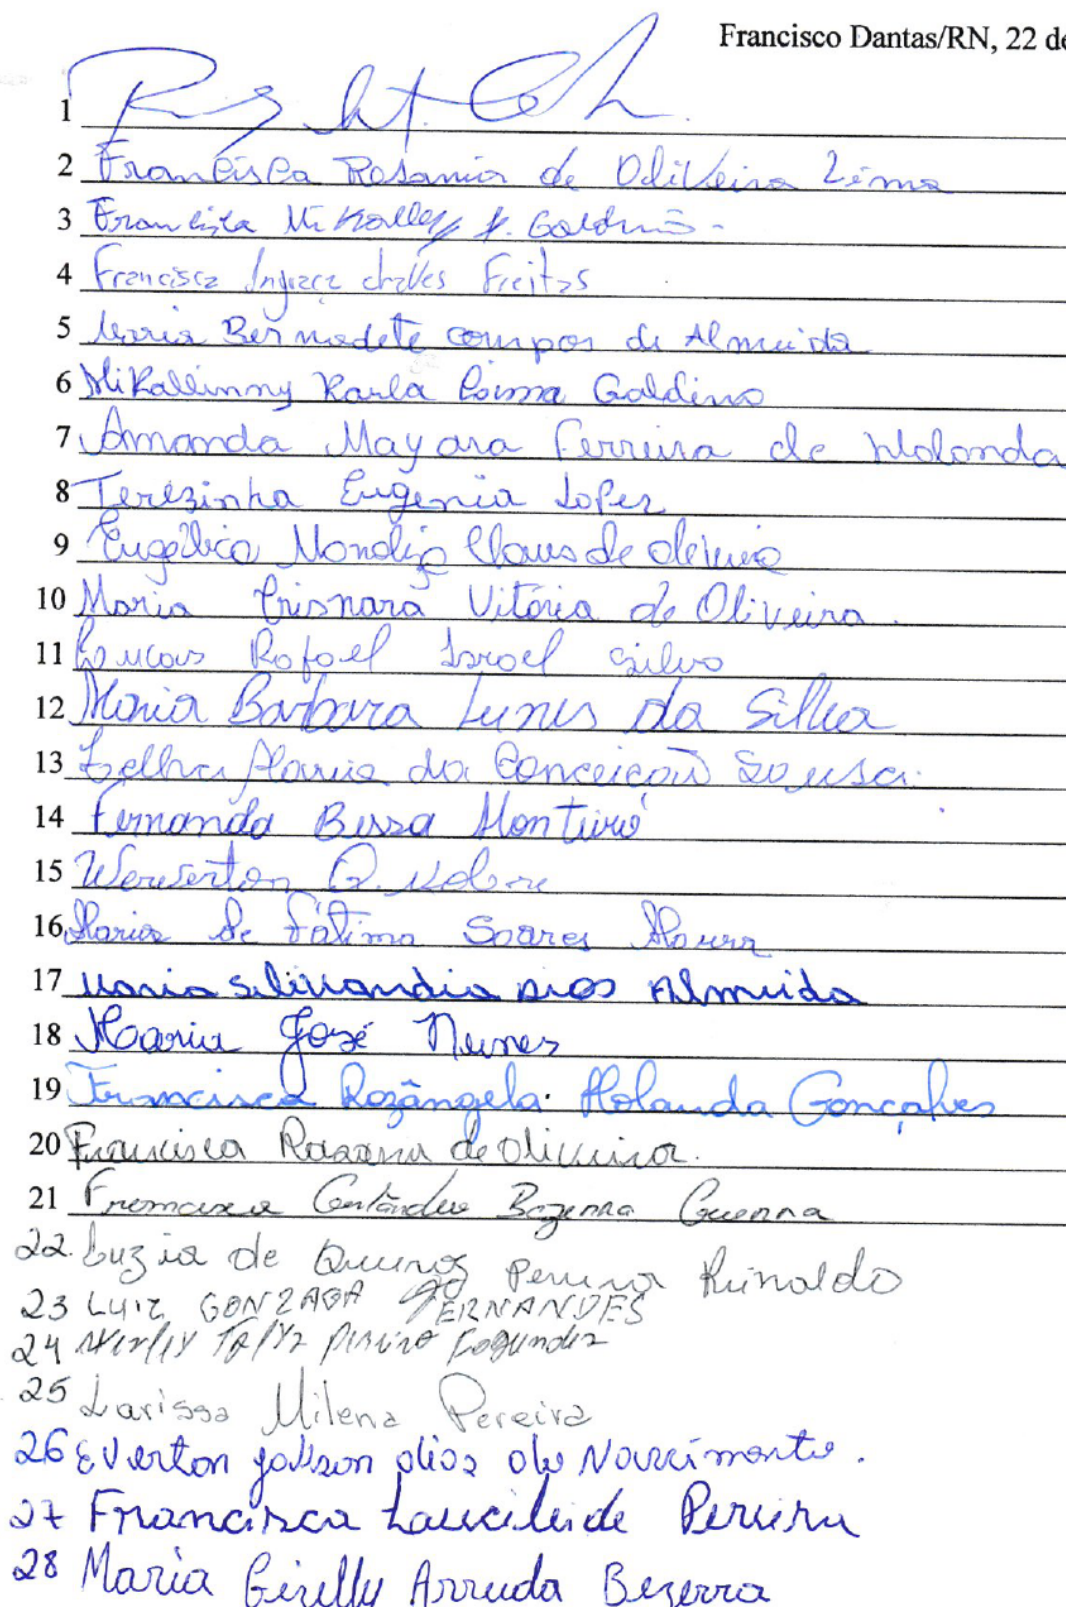 Francisco Dantas/RN, 22 de
1
2 Francisca Rosania de Oliveira Lima
3 Francisca Mikaelly F. Galdino
4 Francisca Ingraça chaves Freitas
5 Maria Bernadete campos de Almeida
6 Mikallinny Karla Lima Galdino
7 Amanda Mayara Ferreira de Holanda
8 Terezinha Eugenia Lopes
9 de oliveira
10 Maria Crisnara Vitória de Oliveira.
11 Lucas Rafael Israel Silva
12 Maria Barbara Nunes da Silva
13 Maria da Conceicao Sousa.
14 Fernanda Bessa Monteiro
15 Weverton Q. Nobre
16 Maria de Fátima Soares Moura
17 Maria Silivandia Dias Almeida
18 Maria José Nunes
19 Francisca Rozângela Holanda Gonçalves
20 Francisca Rosana de oliveira.
21 Francisca Bezerra Guerra
22. Luzia de Queiroz Pereira Rinaldo
23 LUIZ GONZAGA FERNANDES
24 Fagundes
25 Larissa Milena Pereira
26 Everton dias do Nascimento.
27 Francisca Laucileide Pereira
28 Maria Girelly Arruda Bezerra